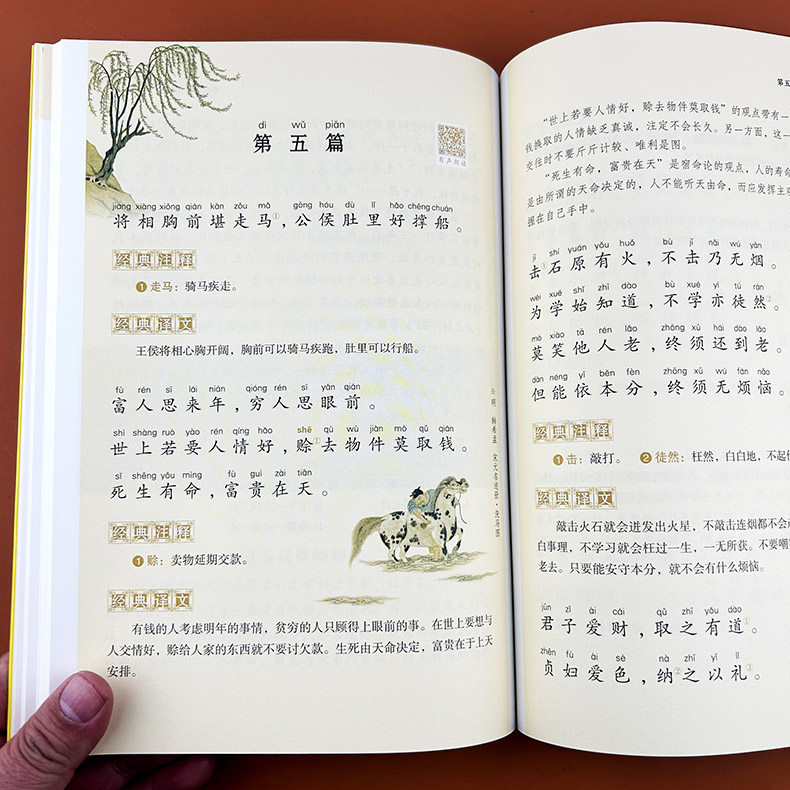 dì wǔ piān
第五篇
有声朗读
jiàng xiàng xiōng qián kān zǒu mǎ gōng hóu dù lǐ hǎo chēng chuán
将相胸前堪走马①，公侯肚里好撑船。
经典注释
①走马：骑马疾走。
经典译文
王侯将相心胸开阔，胸前可以骑马疾跑，肚里可以行船。
fù rén sī lái nián qióng rén sī yǎn qián
富人思来年，穷人思眼前。
shì shàng ruò yào rén qíng hǎo shē qù wù jiàn mò qǔ qián
世上若要人情好，赊①去物件莫取钱。
sǐ shēng yǒu mìng fù guì zài tiān
死生有命，富贵在天。
经典注释
①赊：卖物延期交款。
经典译文
有钱的人考虑明年的事情，贫穷的人只顾得上眼前的事。在世上要想与
人交情好，赊给人家的东西就不要讨欠款。生死由天命决定，富贵在于上天
安排。
明 韩希孟 宋元名迹册·洗马图
第五
“世上若要人情好，赊去物件莫取钱”的观点带有一
钱换取的人情缺乏真诚，注定不会长久。另一方面，这一
交往时不要斤斤计较、唯利是图。
“死生有命，富贵在天”是宿命论的观点，人的寿命
是由所谓的天命决定的，人不能听天由命，而应发挥主观
握在自己手中。
jī shí yuán yǒu huǒ bù jī nǎi wú yān
击①石原有火，不击乃无烟。
wéi xué shǐ zhī dào bù xué yì tú rán
为学始知道，不学亦徒然②。
mò xiào tā rén lǎo zhōng xū hái dào lǎo
莫笑他人老，终须还到老。
dàn néng yī běn fèn zhōng xū wú fán nǎo
但能依本分，终须无烦恼。
经典注释
①击：敲打。 ②徒然：枉然，白白地，不起
经典译文
敲击火石就会迸发出火星，不敲击连烟都不会
白事理，不学习就会枉过一生，一无所获。不要嘲
老去。只要能安守本分，就不会有什么烦恼。
jūn zǐ ài cái qǔ zhī yǒu dào
君子爱财，取之有道①。
zhēn fù ài sè nà zhī yǐ lǐ
贞妇爱色，纳②之以礼③。